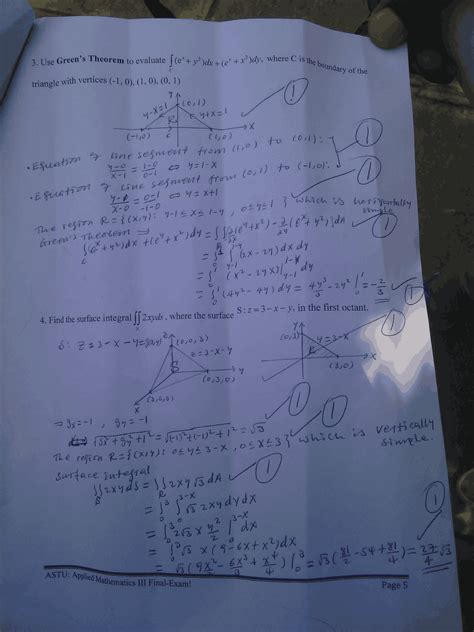 3. Use Green's Theorem to evaluate ∫(eˣ + y²)dx + (eʸ + x²)dy, where C is the boundary of the
triangle with vertices (-1, 0), (1, 0), (0, 1)
y
(0,1)
y-x=1
y+x=1
R
(-1,0)
(1,0)
x
• Equation of line segment from (1,0) to (0,1):
(y-0)/(x-1) = (1-0)/(0-1) ⇔ y=1-x
• Equation of line segment from (0,1) to (-1,0):
= (0-1)/(-1-0) ⇔ y=x+1
The region R={(x,y): y-1 ≤ x ≤ 1-y, 0≤y≤1} which is horizontally simple
Green's Theorem ⇒
= ∫∫ (2x-2y) dx dy
= ∫ (x²-2yx)| dy
= ∫₀¹ (4y²-4y) dy = 4y³/3 - 2y² |₀¹ = -2/3
4. Find the surface integral ∬ 2xyds, where the surface S: z = 3 - x - y, in the first octant.
(0,0,3)
z=3-x-y
S
(0,3,0)
(3,0,0)
x
y
y=3-x
R
(3,0)
x
⇒ gx=-1, gy=-1
√(gx²+gy²+1) = √((-1)²+(-1)²+1²) = √3
The region R={(x,y): 0≤y≤3-x, 0≤x≤3} which is vertically simple.
Surface integral
∬ 2xy ds = ∬ 2xy√3 dA
= ∫₀³ ∫₀³⁻ˣ √3 2xy dy dx
= ∫₀³ 2√3 x y²/2 |₀³⁻ˣ dx
= ∫₀³ √3 x(9-6x+x²) dx
= √3 (9x²/2 - 6x³/3 + x⁴/4) |₀³ = √3 (81/2 - 54 + 81/4) = 27/4 √3
ASTU: Applied Mathematics III Final-Exam!
Page 5